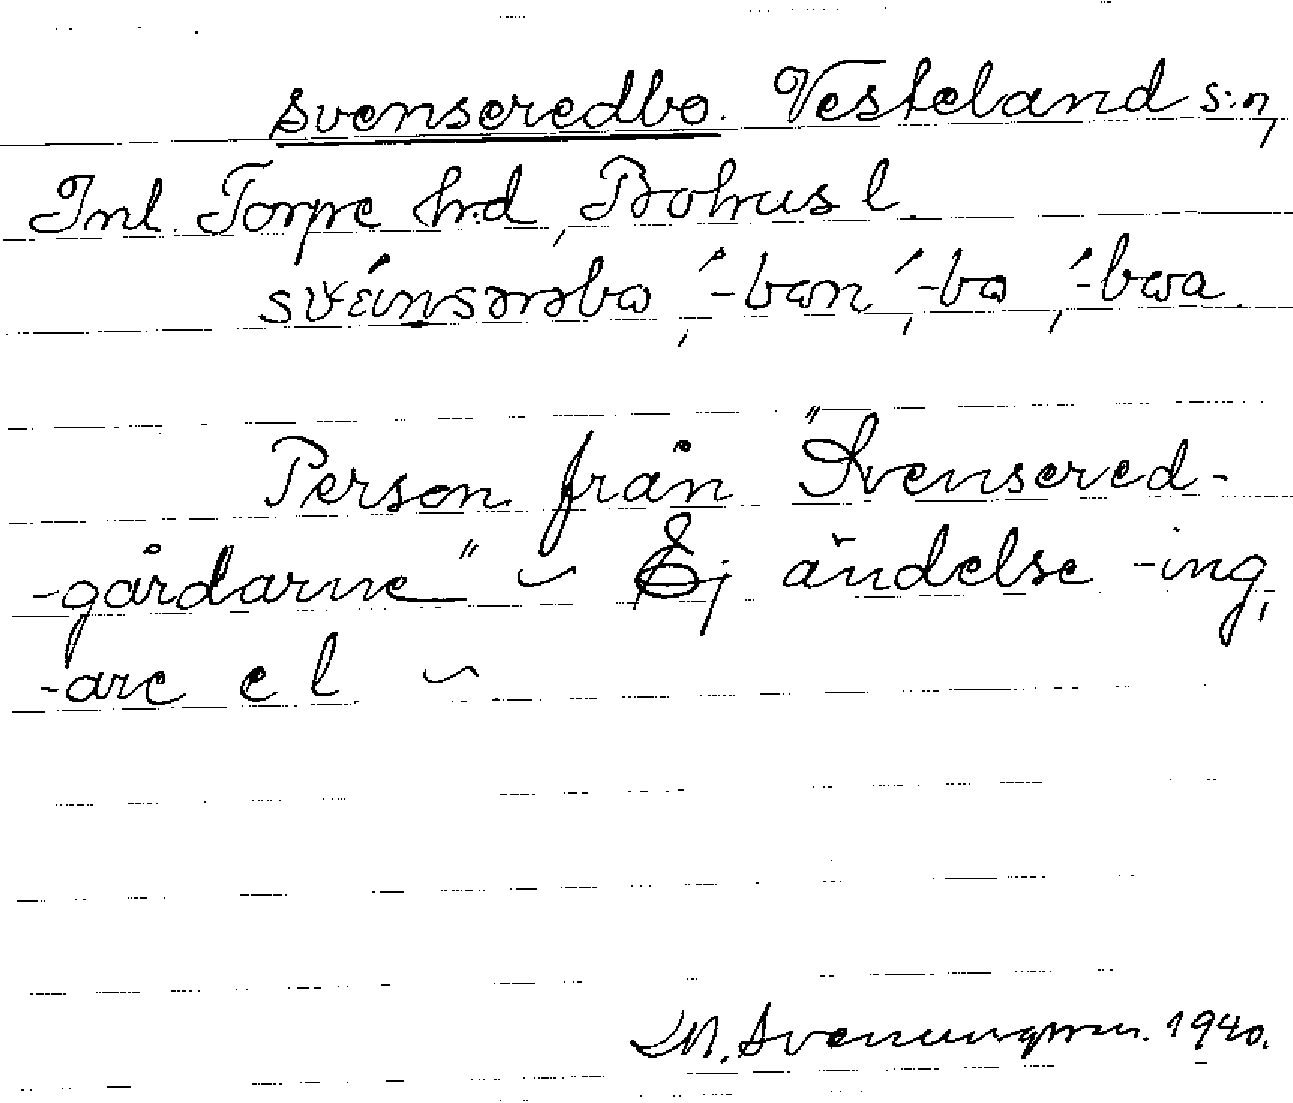 svenseredbo. Vesteland s:n,
Inl. Torpe h:d, Bohus l.
svɛ́insərəbo, ́-bon, ́-bo, ́-boa.
Person från "Svensered-
-gårdarne" ~ Ej ändelse -ing,
-are e l ~
M. Svenungsson. 1940.